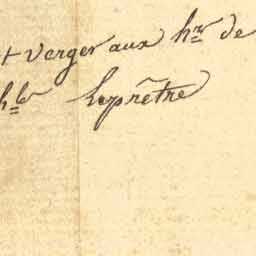 t verger aux hrs de
hle Leprêtre